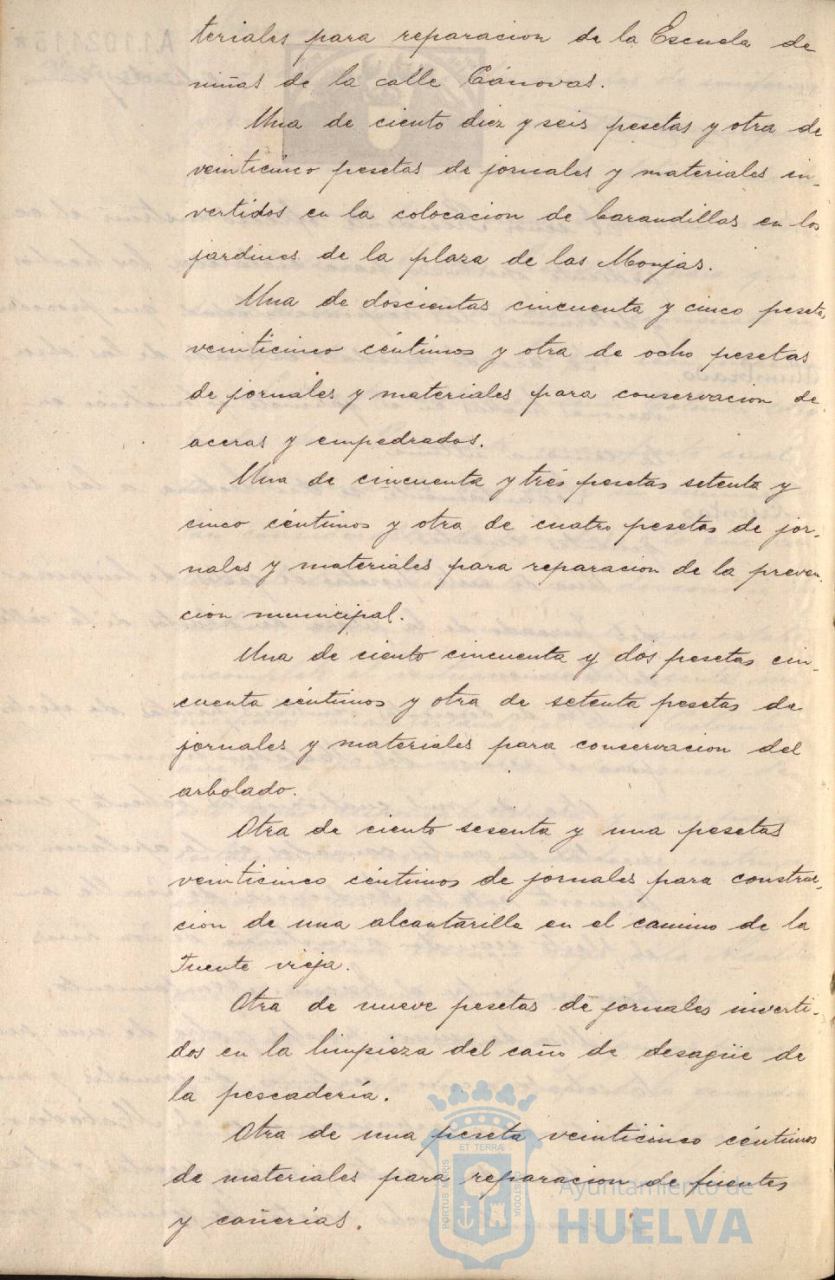 teriales para reparacion de la Escuela de
niñas de la calle Cánovas.
Una de ciento diez y seis pesetas y otra de
veinticinco pesetas de jornales y materiales in-
vertidos en la colocacion de barandillas en los
jardines de la plaza de las Monjas.
Una de doscientas cincuenta y cinco pesetas
veinticinco céntimos y otra de ocho pesetas
de jornales y materiales para conservacion de
aceras y empedrados.
Una de cincuenta y tres pesetas setenta y
cinco céntimos y otra de cuatro pesetas de jor-
nales y materiales para reparacion de la preven-
cion municipal.
Una de ciento cincuenta y dos pesetas cin-
cuenta céntimos y otra de setenta pesetas de
jornales y materiales para conservacion del
arbolado.
Otra de ciento sesenta y una pesetas
veinticinco céntimos de jornales para construc-
cion de una alcantarilla en el camino de la
Fuente vieja.
Otra de nueve pesetas de jornales inverti-
dos en la limpieza del caño de desagüe de
la pescadería.
Otra de una peseta veinticinco céntimos
de materiales para reparacion de fuentes
y cañerias.
ET TERRA
PORTUS MARIS
CUSTODIA
Ayuntamiento de
HUELVA